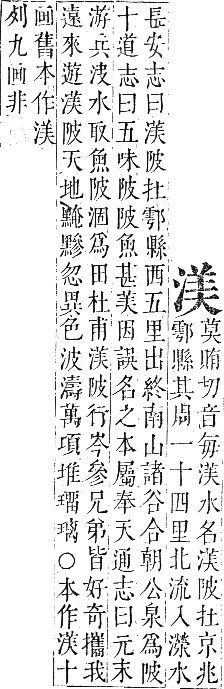 渼莫賄切音每渼水名渼陂扗京兆
鄠縣其周一十四里北流入澇水
長安志曰渼陂扗鄠縣西五里出終南山諸谷合朝公泉爲陂
十道志曰五味陂陂魚甚美因誤名之本屬奉天通志曰元末
游兵决水取魚陂涸爲田杜甫渼陂行岑參兄弟皆好奇攜我
遠來遊渼陂天地黤黲忽異色波濤萬項堆瑠璃○本作渼十
画舊本作渼
列九画非